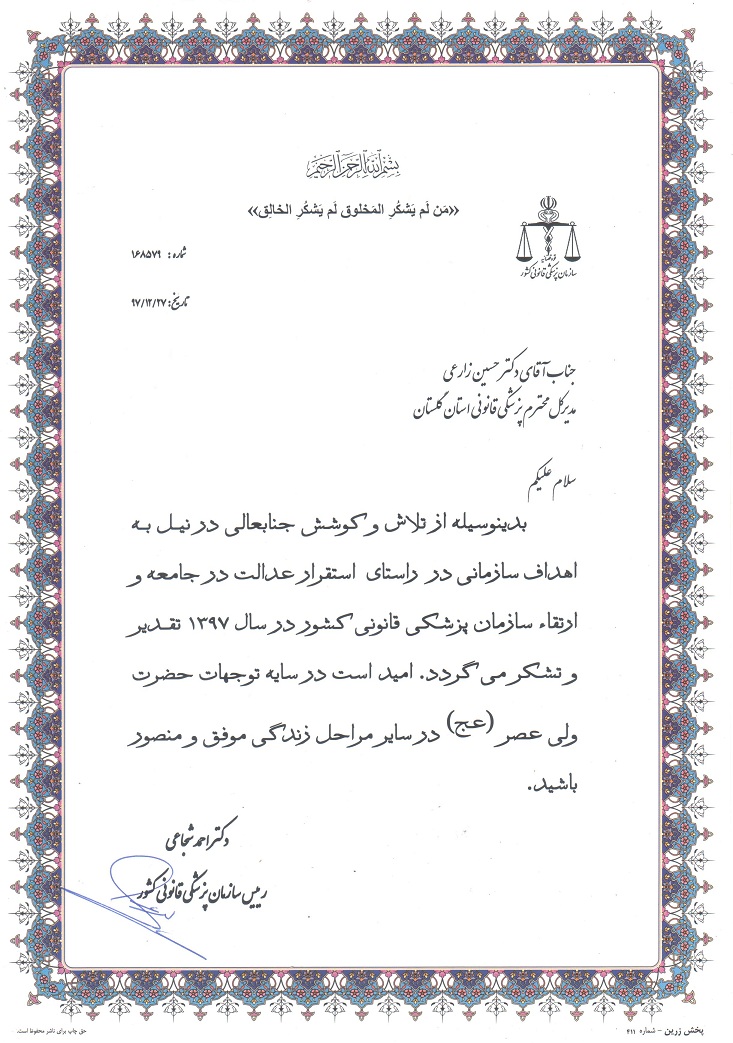 بسم الله الرحمن الرحیم
«مَن لَم یَشکُرِ المَخلوق لَم یَشکُرِ الخالِق»
قوه قضاییه
سازمان پزشکی قانونی کشور
شماره: ۱۶۸۵۷۹
تاریخ: ۹۷/۱۲/۲۷
جناب آقای دکتر حسین زارعی
مدیرکل محترم پزشکی قانونی استان گلستان
سلام علیکم
بدینوسیله از تلاش و کوشش جنابعالی در نیل به
اهداف سازمانی در راستای استقرار عدالت در جامعه و
ارتقاء سازمان پزشکی قانونی کشور در سال ۱۳۹۷ تقدیر
و تشکر می گردد. امید است در سایه توجهات حضرت
ولی عصر (عج) در سایر مراحل زندگی موفق و منصور
باشید.
دکتر احمد شجاعی
رییس سازمان پزشکی قانونی کشور
پخش زرین - شماره ۴۱۱
حق چاپ برای ناشر محفوظ است.